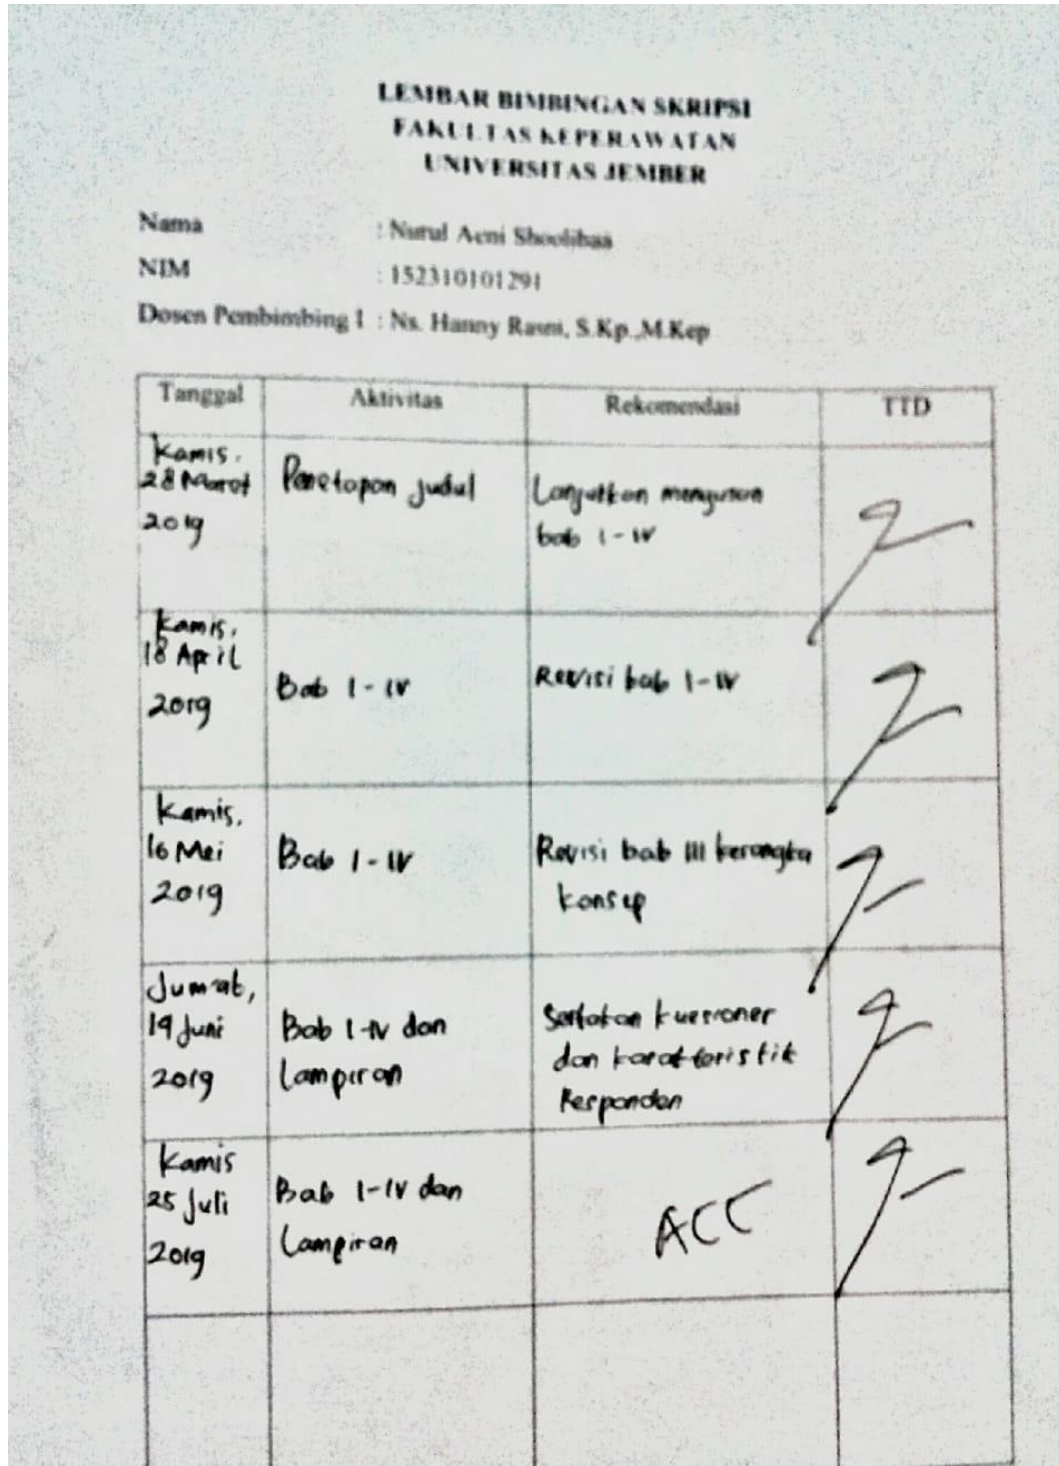 LEMBAR BIMBINGAN SKRIPSI
FAKULTAS KEPERAWATAN
UNIVERSITAS JEMBER
Nama : Nurul Aeni Shoolihaa
NIM : 152310101291
Dosen Pembimbing I : Ns. Hanny Rasni, S.Kp.,M.Kep
Tanggal Aktivitas Rekomendasi TTD
Kamis,
28 Maret Penetapan judul Lanjutkan menyusun
2019 bab I-IV
Kamis,
18 April
2019 Bab I-IV Revisi bab I-IV
Kamis,
16 Mei Bab I-IV Revisi bab III kerangka
2019 konsep
Jum'at,
19 Juni Bab I-IV dan Sertakan kuesioner
2019 Lampiran dan karakteristik
Responden
Kamis
25 Juli Bab I-IV dan ACC
2019 Lampiran